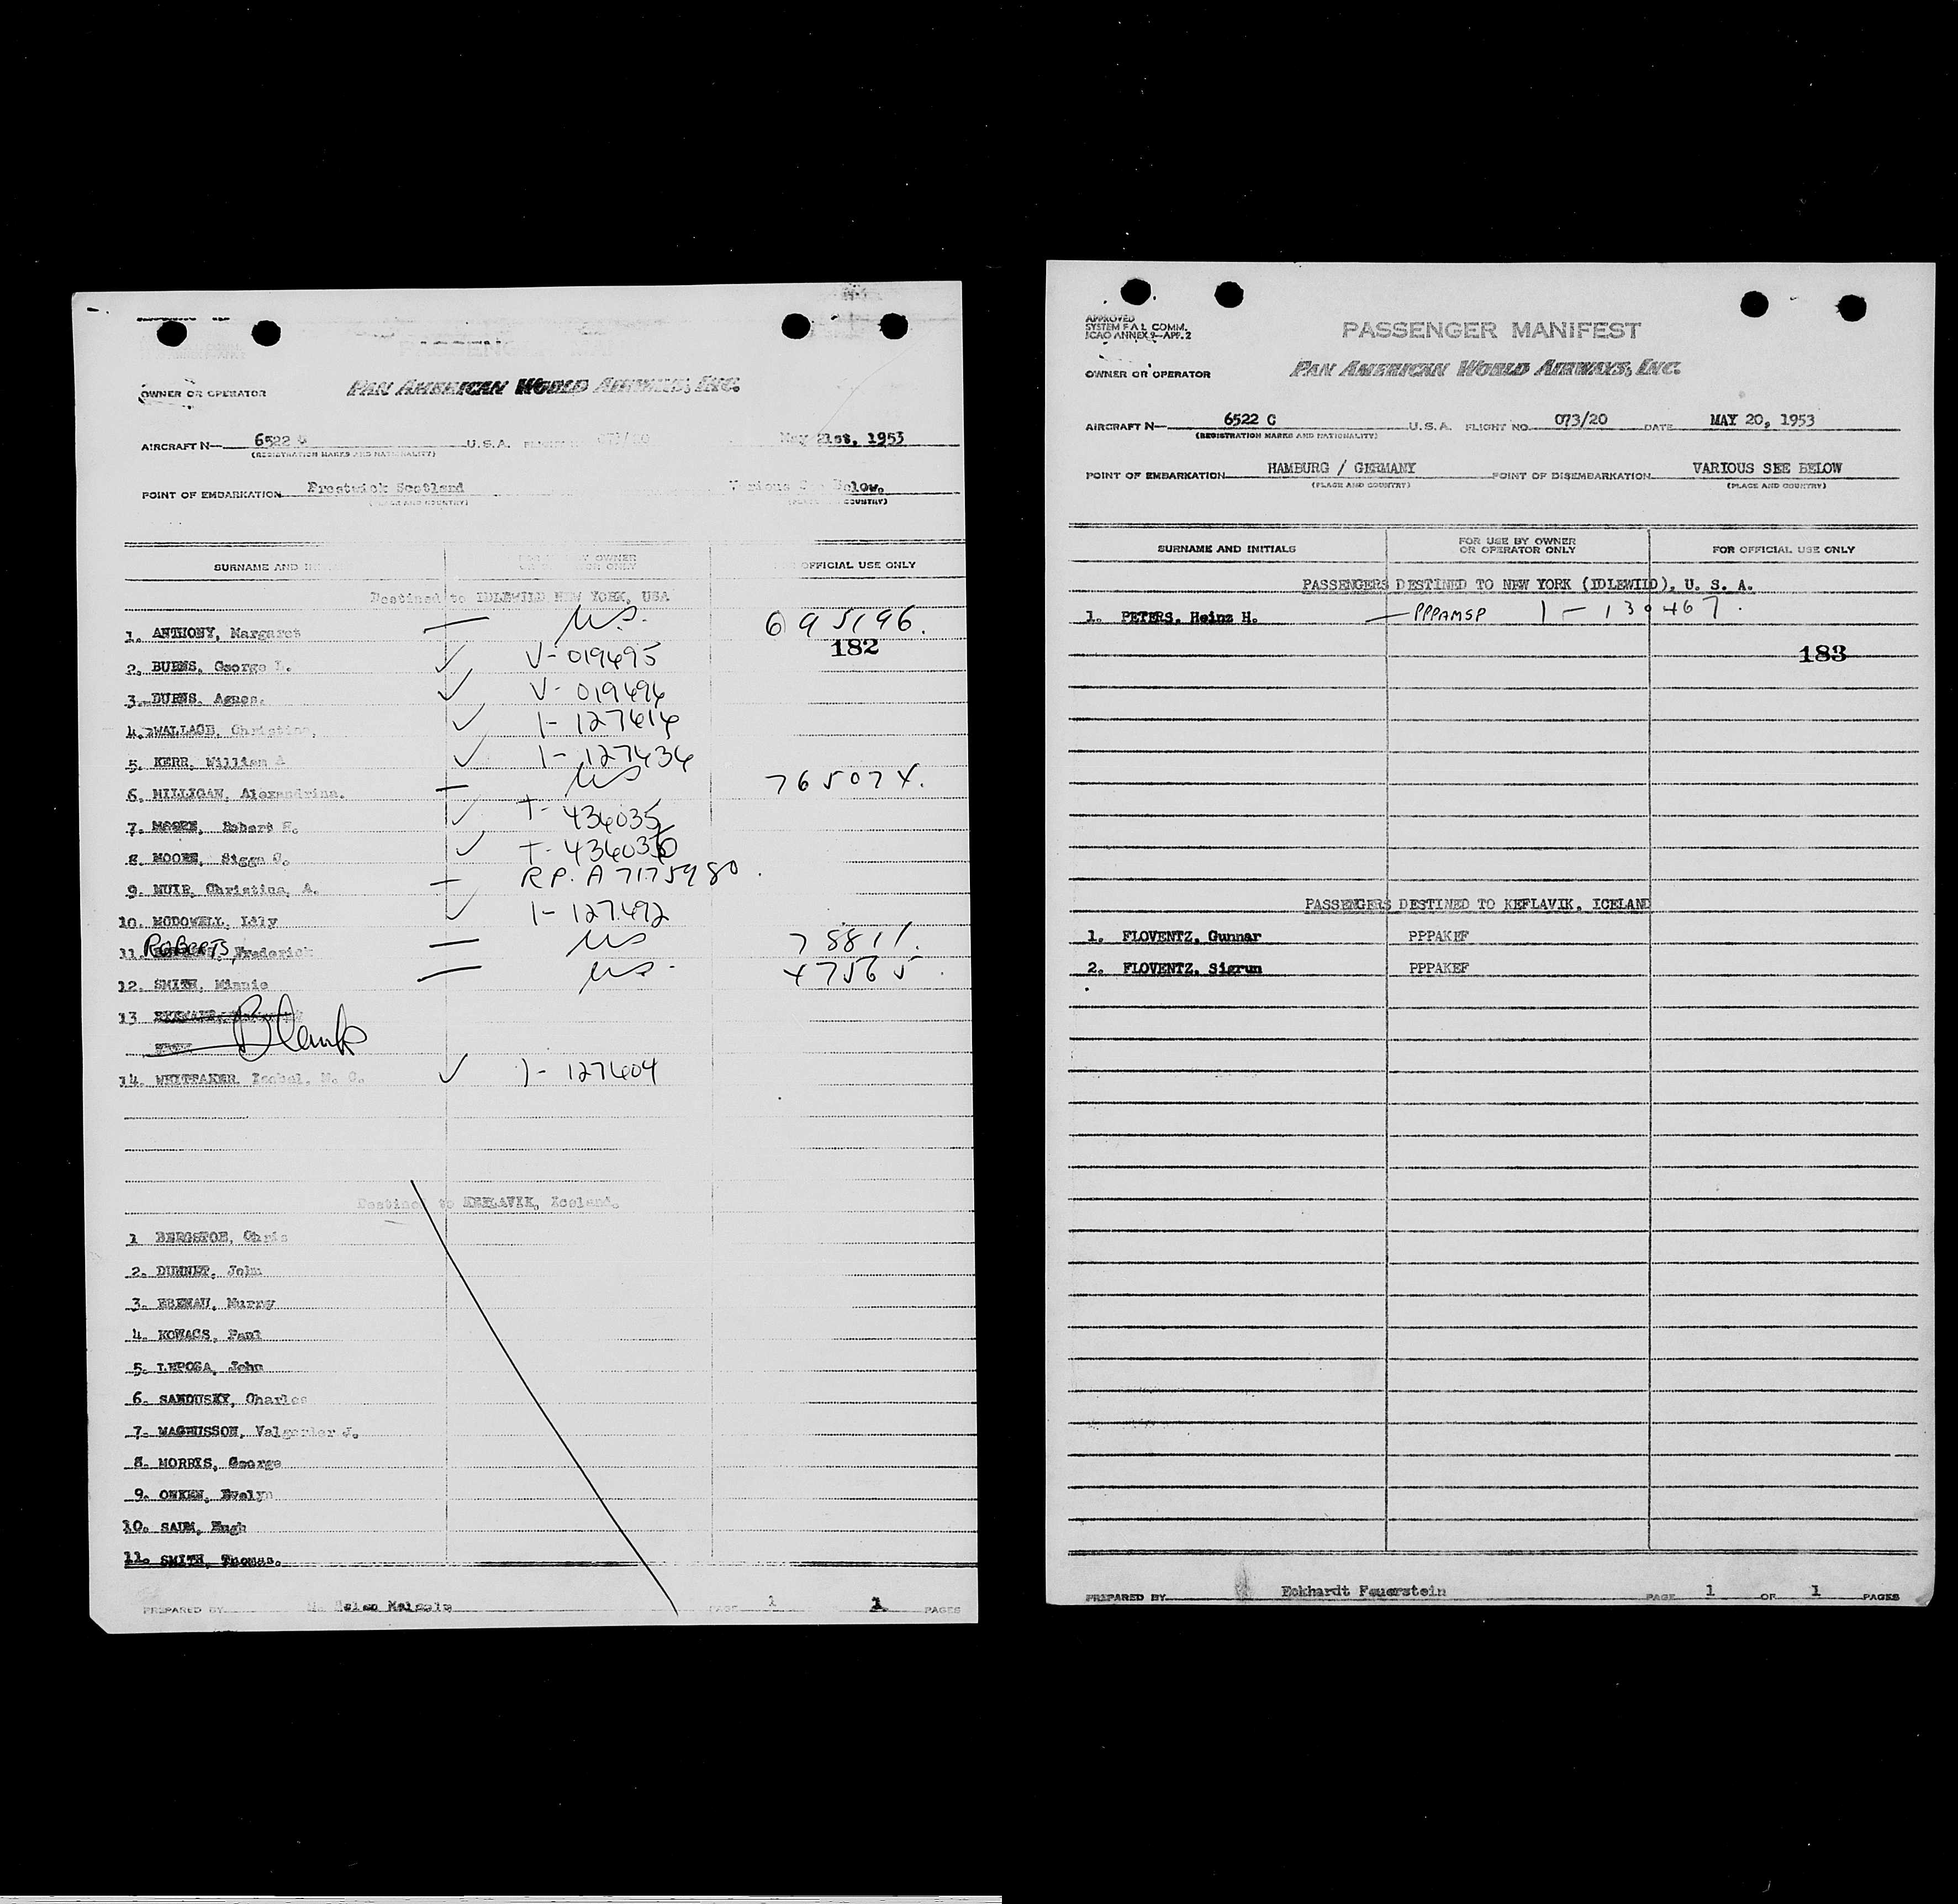 PASSENGER MAN
OWNER OR OPERATOR
PAN AMERICAN WORLD AIRWAYS, INC.
AIRCRAFT N— 6522 U.S.A. 073/20 May 21st, 1953
(REGISTRATION MARKS AND NATIONALITY)
POINT OF EMBARKATION Prestwick Scotland Various See Below.
(PLACE AND COUNTRY) COUNTRY)
SURNAME AND OWNER ONLY OFFICIAL USE ONLY
Destined to IDLEWILD NEW YORK, USA
1. ANTHONY, Margaret — US. 695196.
182
2. BURNS, George ✓ V-019495
3. BURNS, Agnes. ✓ V-019494
4. WALLACE, Christina, ✓ 1-127414
5. KERR, William A ✓ 1-127434
6. MILLIGAN, Alexandrina. — US 765074.
7. MOORE, Robert ✓ T-434035
8. MOORE, Sigga ✓ T-434036
9. MUIR, Christina, A. — R.P. A7175980.
10. MCDOWELL, Lily ✓ 1-127492
11. ROBERTS, Frederick — US 78811.
12. SMITH, Minnie — US. 47565.
13 Blank
14. WHITEAKER, Isabel, M. C. ✓ 1-127404
Destined to KEFLAVIK, Iceland.
1 BERGSTOE, Chris
2. DUMNEP, John
3. EBENAU, Murry
4. KOWACS, Paul
5. LEPOSA, John
6. SANDUSKY, Charles
7. MAGNUSSON, J.
8. MORRIS, George
9. ONKEN, Evelyn
10. SAUM, Hugh
11. SMITH, Thomas.
PREPARED BY PAGE 1 1 PAGES
APPROVED
SYSTEM F A L COMM.
ICAO ANNEX 9—APP. 2
PASSENGER MANIFEST
OWNER OR OPERATOR
PAN AMERICAN WORLD AIRWAYS, INC.
AIRCRAFT N— 6522 C U.S.A. FLIGHT NO. 073/20 DATE MAY 20, 1953
(REGISTRATION MARKS AND NATIONALITY)
POINT OF EMBARKATION HAMBURG / GERMANY POINT OF DISEMBARKATION VARIOUS SEE BELOW
(PLACE AND COUNTRY) (PLACE AND COUNTRY)
SURNAME AND INITIALS FOR USE BY OWNER OR OPERATOR ONLY FOR OFFICIAL USE ONLY
PASSENGERS DESTINED TO NEW YORK (IDLEWILD), U. S. A.
1. PETERS, Heinz H. — PPPAMSP 1-130467.
183
PASSENGERS DESTINED TO KEFLAVIK, ICELAND
1. FLOVENTZ, Gunnar PPPAKEF
2. FLOVENTZ, Sigrun PPPAKEF
PREPARED BY Eckhardt Feuerstein PAGE 1 OF 1 PAGES